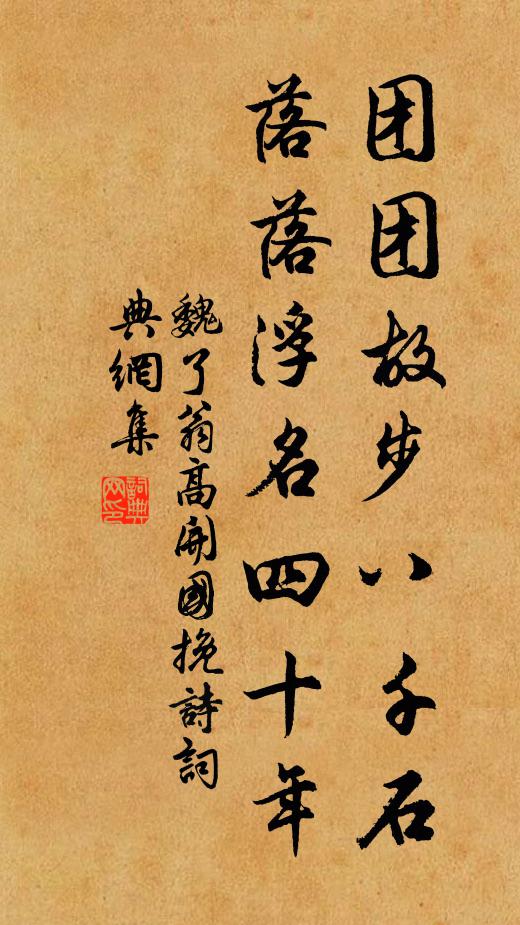 团团故步八千石
落落浮名四十年
魏了翁高开國挽詩詞
典網集
詞典網印